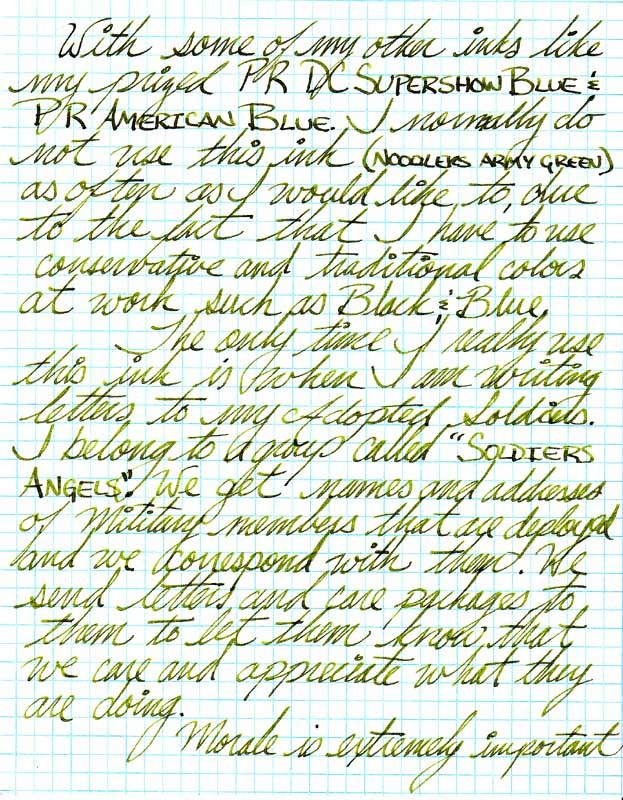 With some of my other inks like
my prized PR DC SUPERSHOW BLUE &
PR AMERICAN BLUE. I normally do
not use this ink (NOODLERS ARMY GREEN)
as often as I would like to, due
to the fact that I have to use
conservative and traditional colors
at work such as Black & Blue.
The only time I really use
this ink is when I am writing
letters to my Adopted Soldiers.
I belong to a group called "SOLDIERS
ANGELS". We get names and addresses
of Military members that are deployed
and we correspond with them. We
send letters and care packages to
them to let them know that
we care and appreciate what they
are doing.
Morale is extremely important